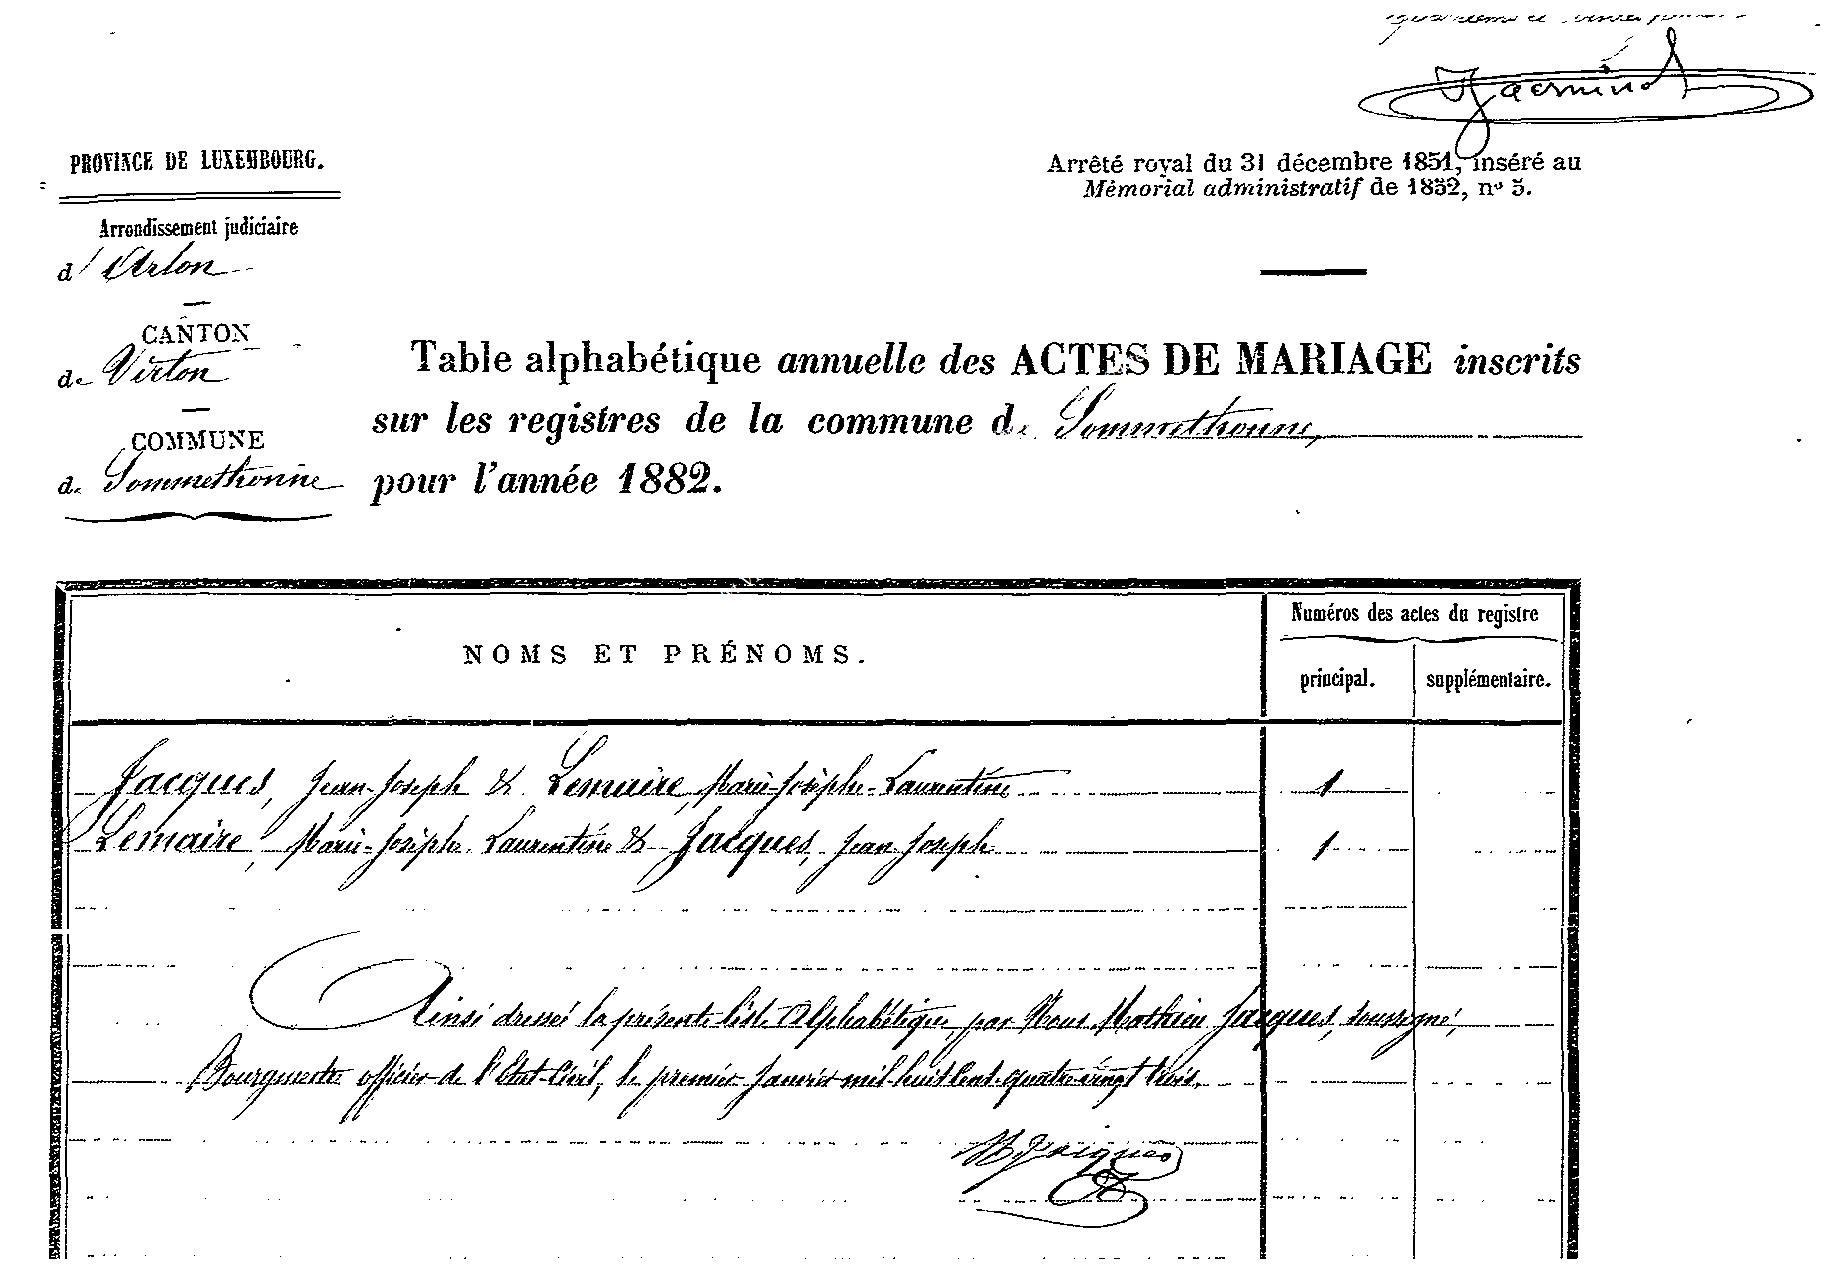 Jacminot
PROVINCE DE LUXEMBOURG.
Arrêté royal du 31 décembre 1851, inséré au
Mémorial administratif de 1852, nº 5.
Arrondissement judiciaire
d'Arlon
CANTON
de Virton
COMMUNE
de Sommethonne
Table alphabétique annuelle des ACTES DE MARIAGE inscrits
sur les registres de la commune de Sommethonne,
pour l'année 1882.
NOMS ET PRÉNOMS.
Numéros des actes du registre
principal.
supplémentaire.
Jacques, Jean-Joseph & Lemaire, Marie-Josèphe-Laurentine 1
Lemaire, Marie-Josèphe Laurentine & Jacques, Jean Joseph 1
Ainsi dressé la présente liste Alphabétique, par Nous Mathieu Jacques, soussigné,
Bourgmestre officier de l'Etat-Civil, le premier Janvier mil huit cent quatre vingt trois.
M Jacques